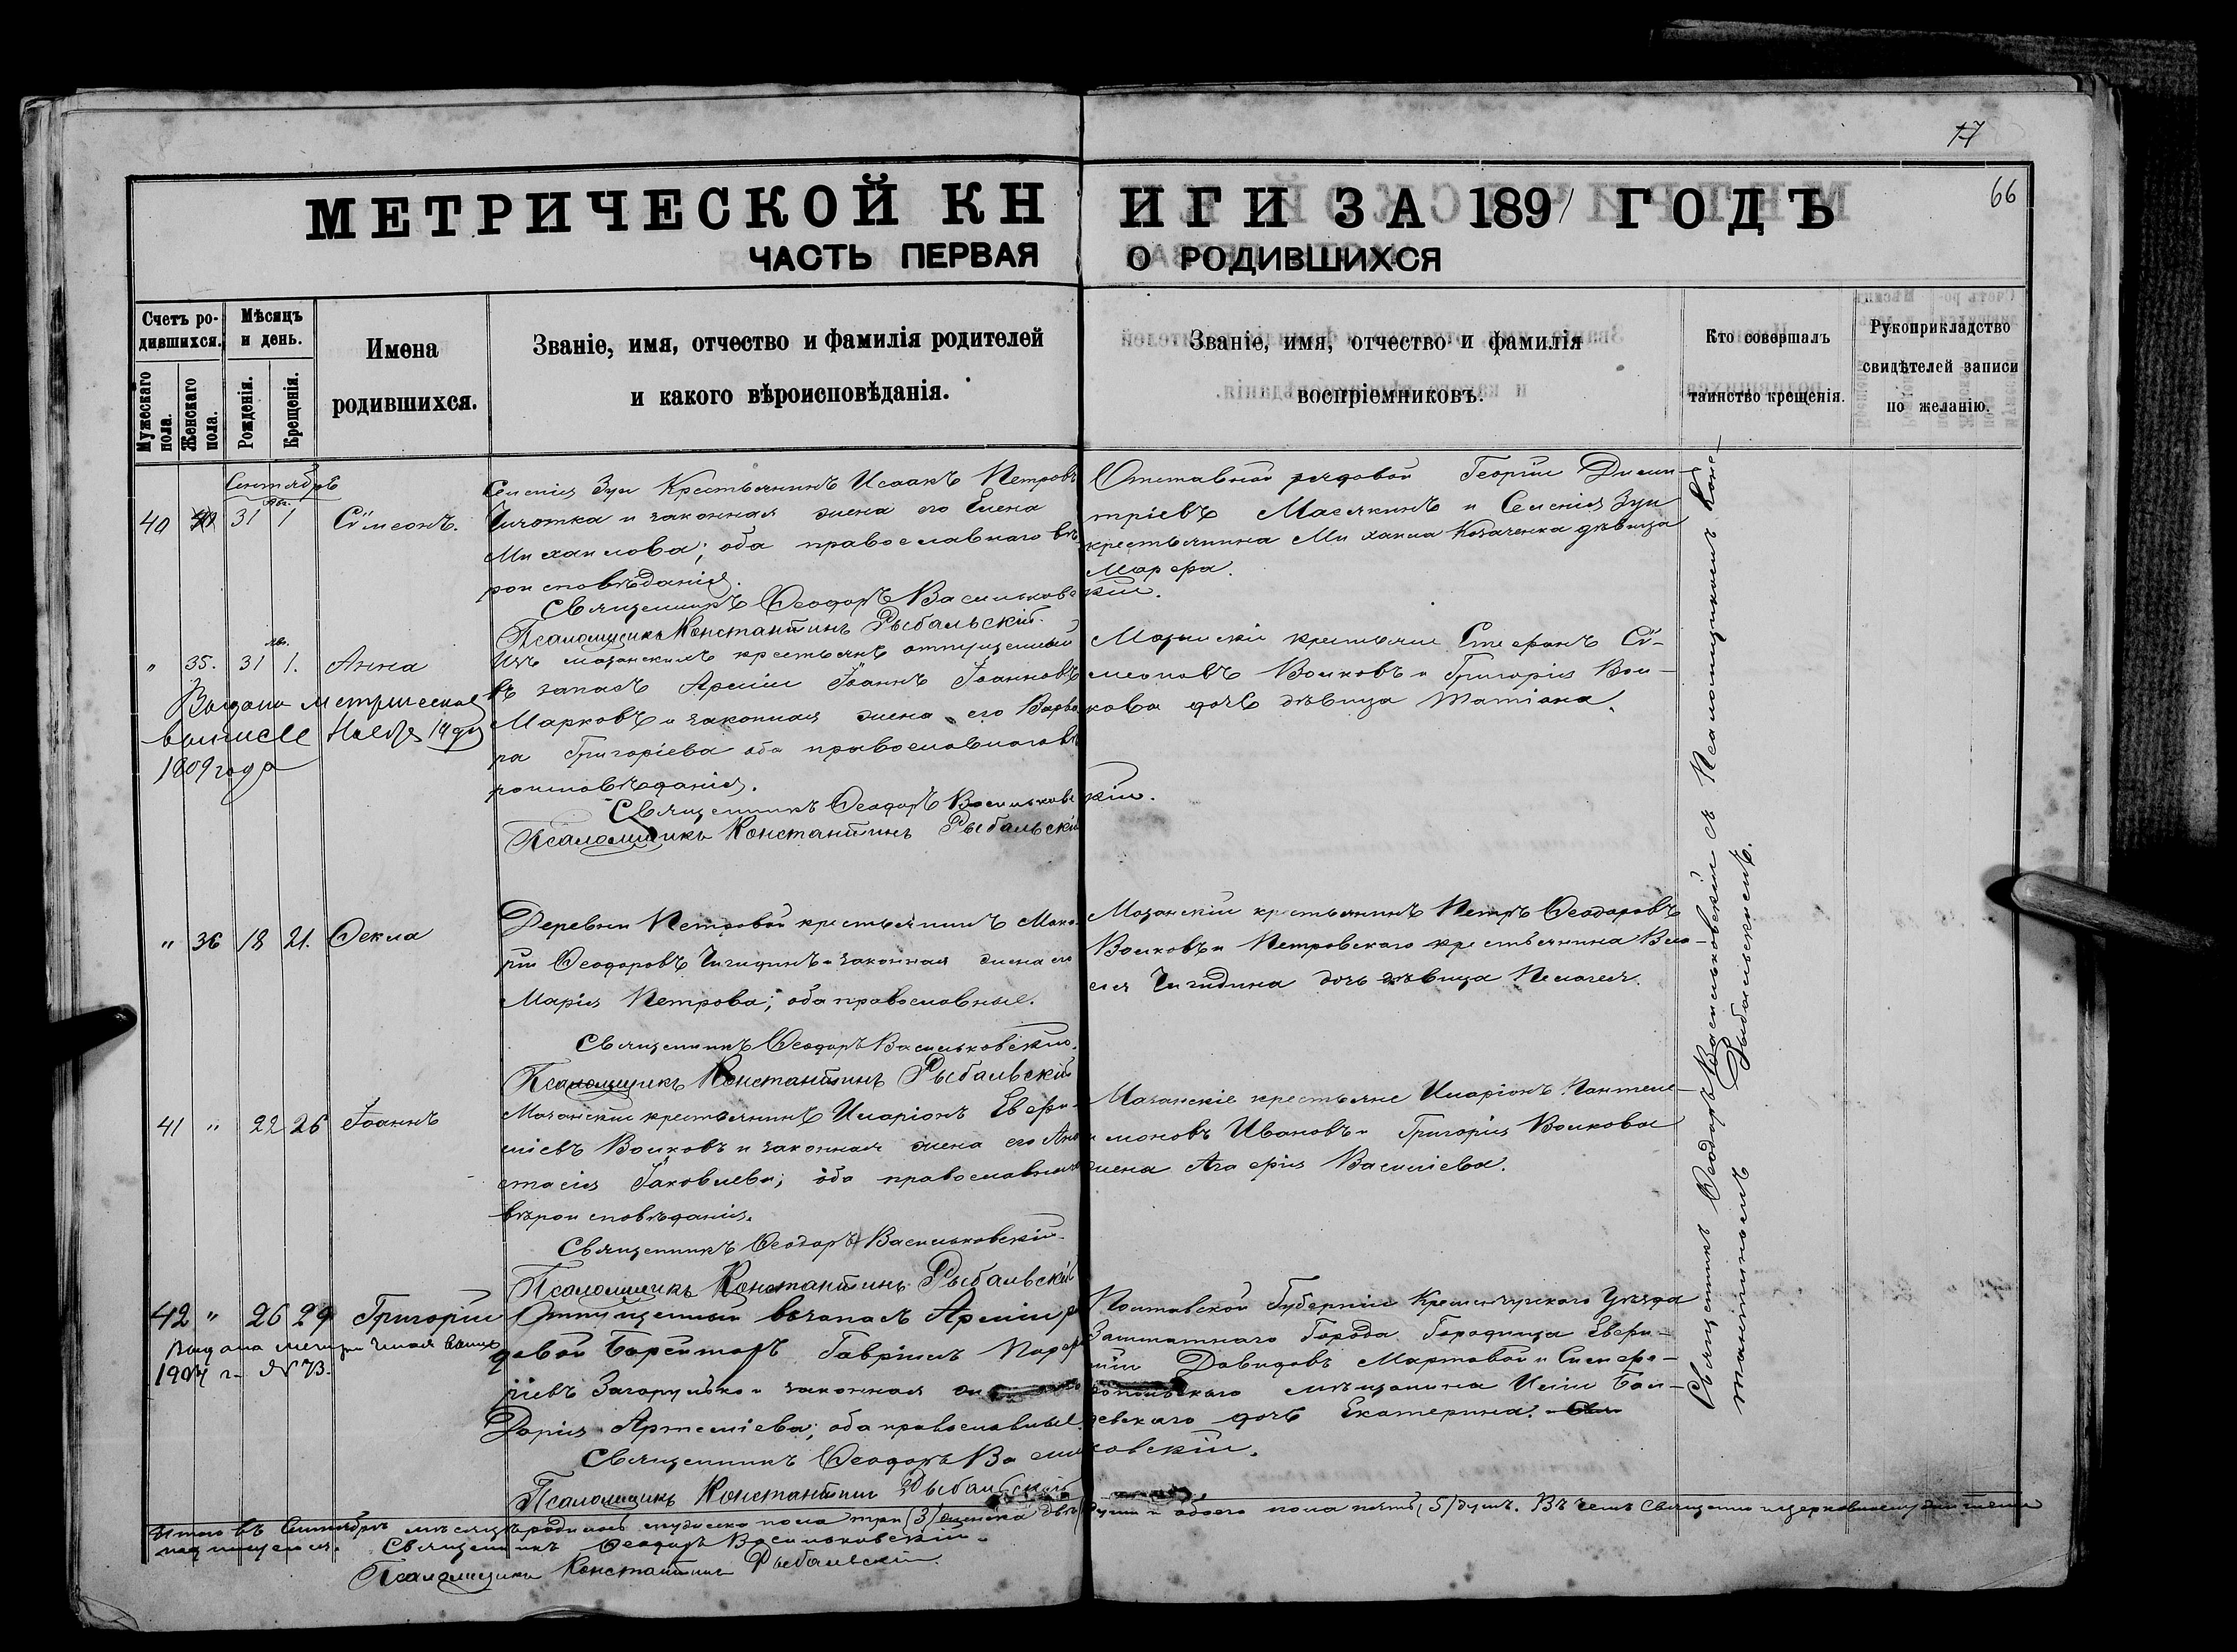 17
66
МЕТРИЧЕСКОЙ КНИГИ ЗА 1891 ГОДЪ
ЧАСТЬ ПЕРВАЯ О РОДИВШИХСЯ
Счетъ ро-
дившихся.
Мужескаго пола.
Женскаго пола.
Мѣсяцъ
и день.
Рожденія.
Крещенія.
Имена
родившихся.
Званіе, имя, отчество и фамилія родителей
и какого вѣроисповѣданія.
Званіе, имя, отчество и фамилія
воспріемниковъ.
Кто совершалъ
таинство крещенія.
Рукоприкладство
свидѣтелей записи
по желанію.
Сентябрь
40 31 1 Сѵмеонъ.
Крестьянинъ Исаакъ Петровъ
и законная жена его Елена
Михаилова; оба православнаго вѣ
роисповѣданія.
Священникъ Ѳеодоръ Васильковскій.
Псаломщикъ Константинъ Рыбальскій.
Отставной рядовой Георгій Дими-
тріевъ Масякинъ и
крестьянина Михаила Козаченка дѣвица
Марфа.
" 35. 31 1. Анна
Изъ мазанскихъ крестьянъ отпущенный
въ запасъ Арміи Іоаннъ Іоанновъ
Марковъ и законная жена его Варва
ра Григоріева оба православнаго вѣ
роисповѣданія.
Священникъ Ѳеодоръ Васильковскій.
Псаломщикъ Константинъ Рыбальскій
Мазанскіе крестьяне Стефанъ Сѵ-
меоновъ Волковъ и Григорія Вол-
кова дочь дѣвица Татіана.
1909 года
" 36 18 21. Ѳекла
Деревни Петровой крестьянинъ Мака
рій Ѳеодоровъ Чигидинъ и законная жена его
Марія Петрова; оба православные.
Священникъ Ѳеодоръ Васильковскій.
Псаломщикъ Константинъ Рыбальскій
Мазанскій крестьянинъ Петръ Ѳеодоровъ
Волковъ и Петровскаго крестьянина
Чигидина дочь дѣвица Пелагея.
41 " 22 26 Іоаннъ
Мазанскій крестьянинъ Иларіонъ Евфи-
міевъ Волковъ и законная жена его Ана
стасія Іаковлева; оба православнаго
вѣроисповѣданія.
Священникъ Ѳеодоръ Васильковскій.
Псаломщикъ Константинъ Рыбальскій
Мазанскіе крестьяне Иларіонъ Пантеле-
моновъ Ивановъ и Григорія Волкова
жена Агафія Василіева.
42 " 26 29 Григорій
Отпущенный въ запасъ Арміи ря
довой Гавріилъ Порфи
ріевъ Загорулько и законная
Дарія Артеміева; оба православные.
Священникъ Ѳеодоръ Васильковскій.
Псаломщикъ Константинъ Рыбальскій
Полтавской Губерніи Кременчугскаго Уѣзда
Заштатнаго Города Городища Евфи-
мій Давидовъ Мартовой и Симферо-
польскаго мѣщанина
дочь Екатерина.
Священникъ Ѳеодоръ Васильковскій съ Псаломщикомъ Кон-
стантиномъ Рыбальскимъ.
Итого въ Сентябрѣ мѣсяцѣ родилось мужеска пола три (3) женска двѣ души и обоего пола пять (5) душъ. Въ чемъ священно церковнослужители
подписуемся. Священникъ Ѳеодоръ Васильковскій.
Псаломщикъ Константинъ Рыбальскій